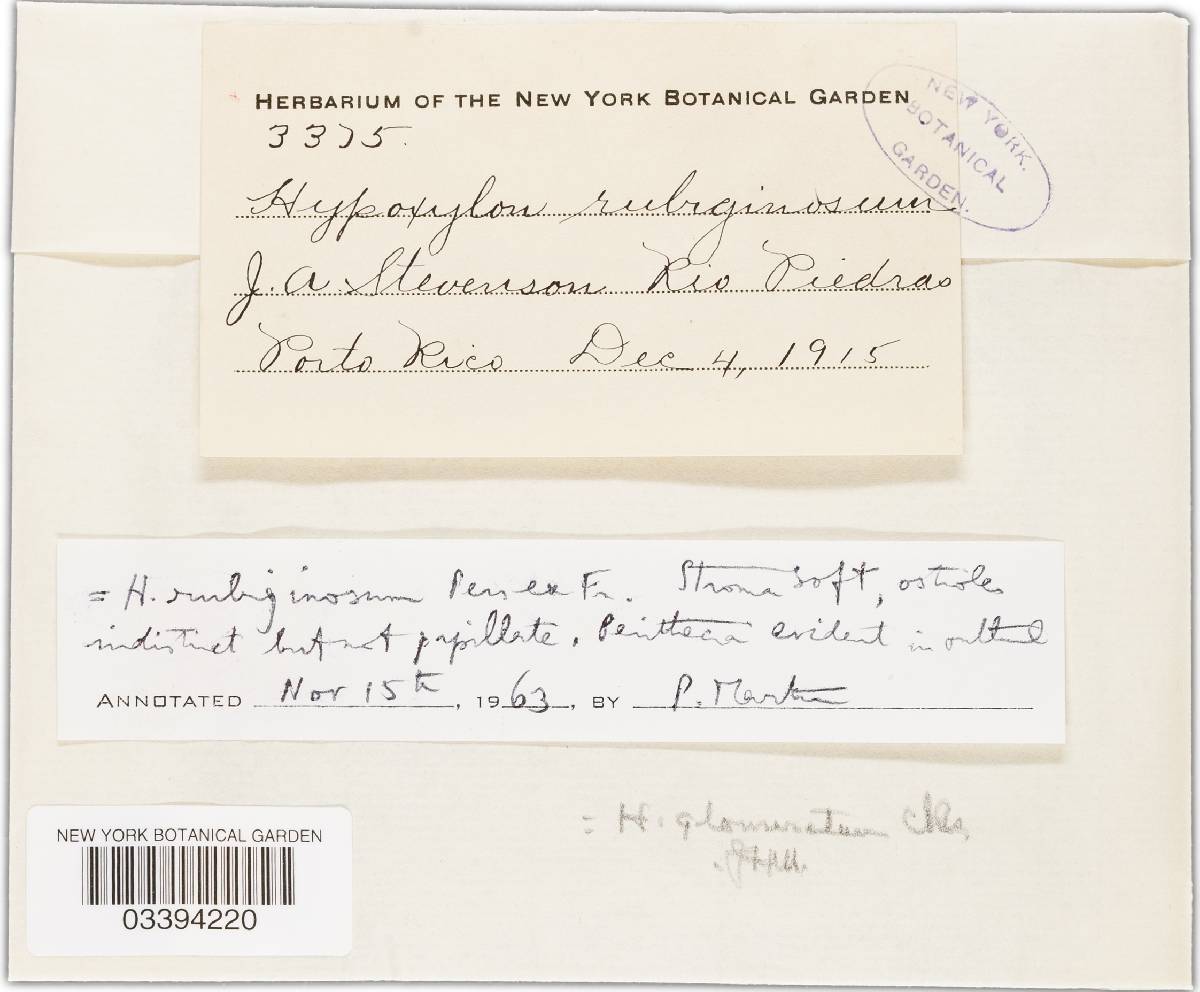 HERBARIUM OF THE NEW YORK BOTANICAL GARDEN
NEW YORK.
BOTANICAL
GARDEN.
3375.
Hypoxylon rubiginosum
J. A. Stevenson Rio Piedras
Porto Rico Dec 4, 1915
= H. rubiginosum Pers ex Fr. Stroma soft, ostioles
indistinct but not papillate. Perithecia evident in
ANNOTATED Nov 15th, 1963, BY P. Martin
= H. glomeratum Cke.
NEW YORK BOTANICAL GARDEN
03394220